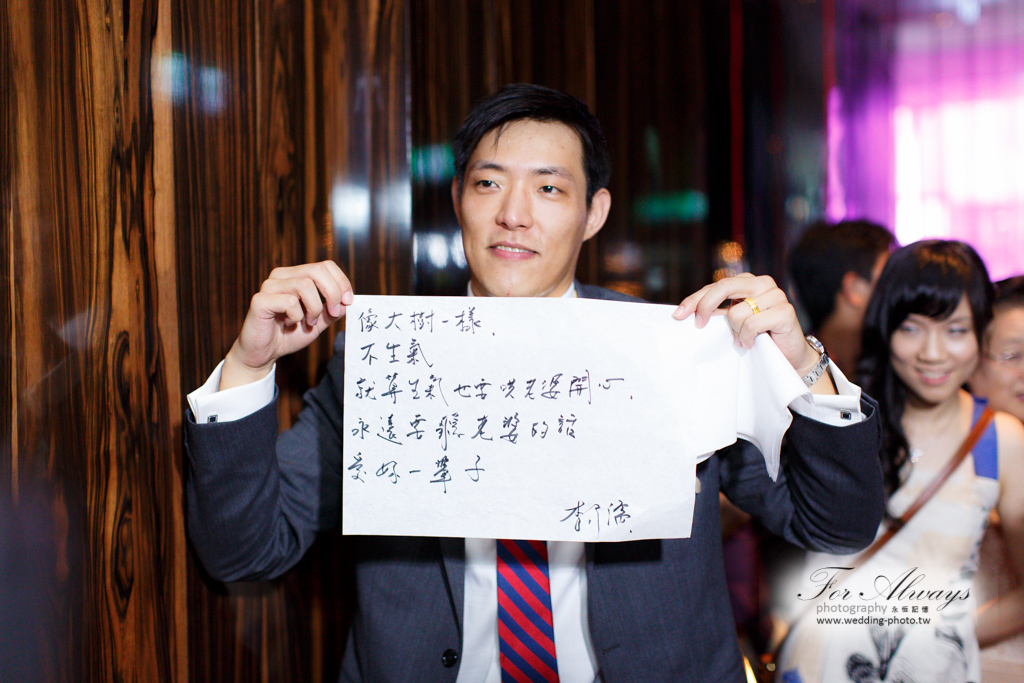 像大樹一樣.
不生氣
就算生氣也要哄老婆開心.
永遠要聽老婆的話
愛妳一輩子
For Always
photography 永恆記憶
www.wedding-photo.tw